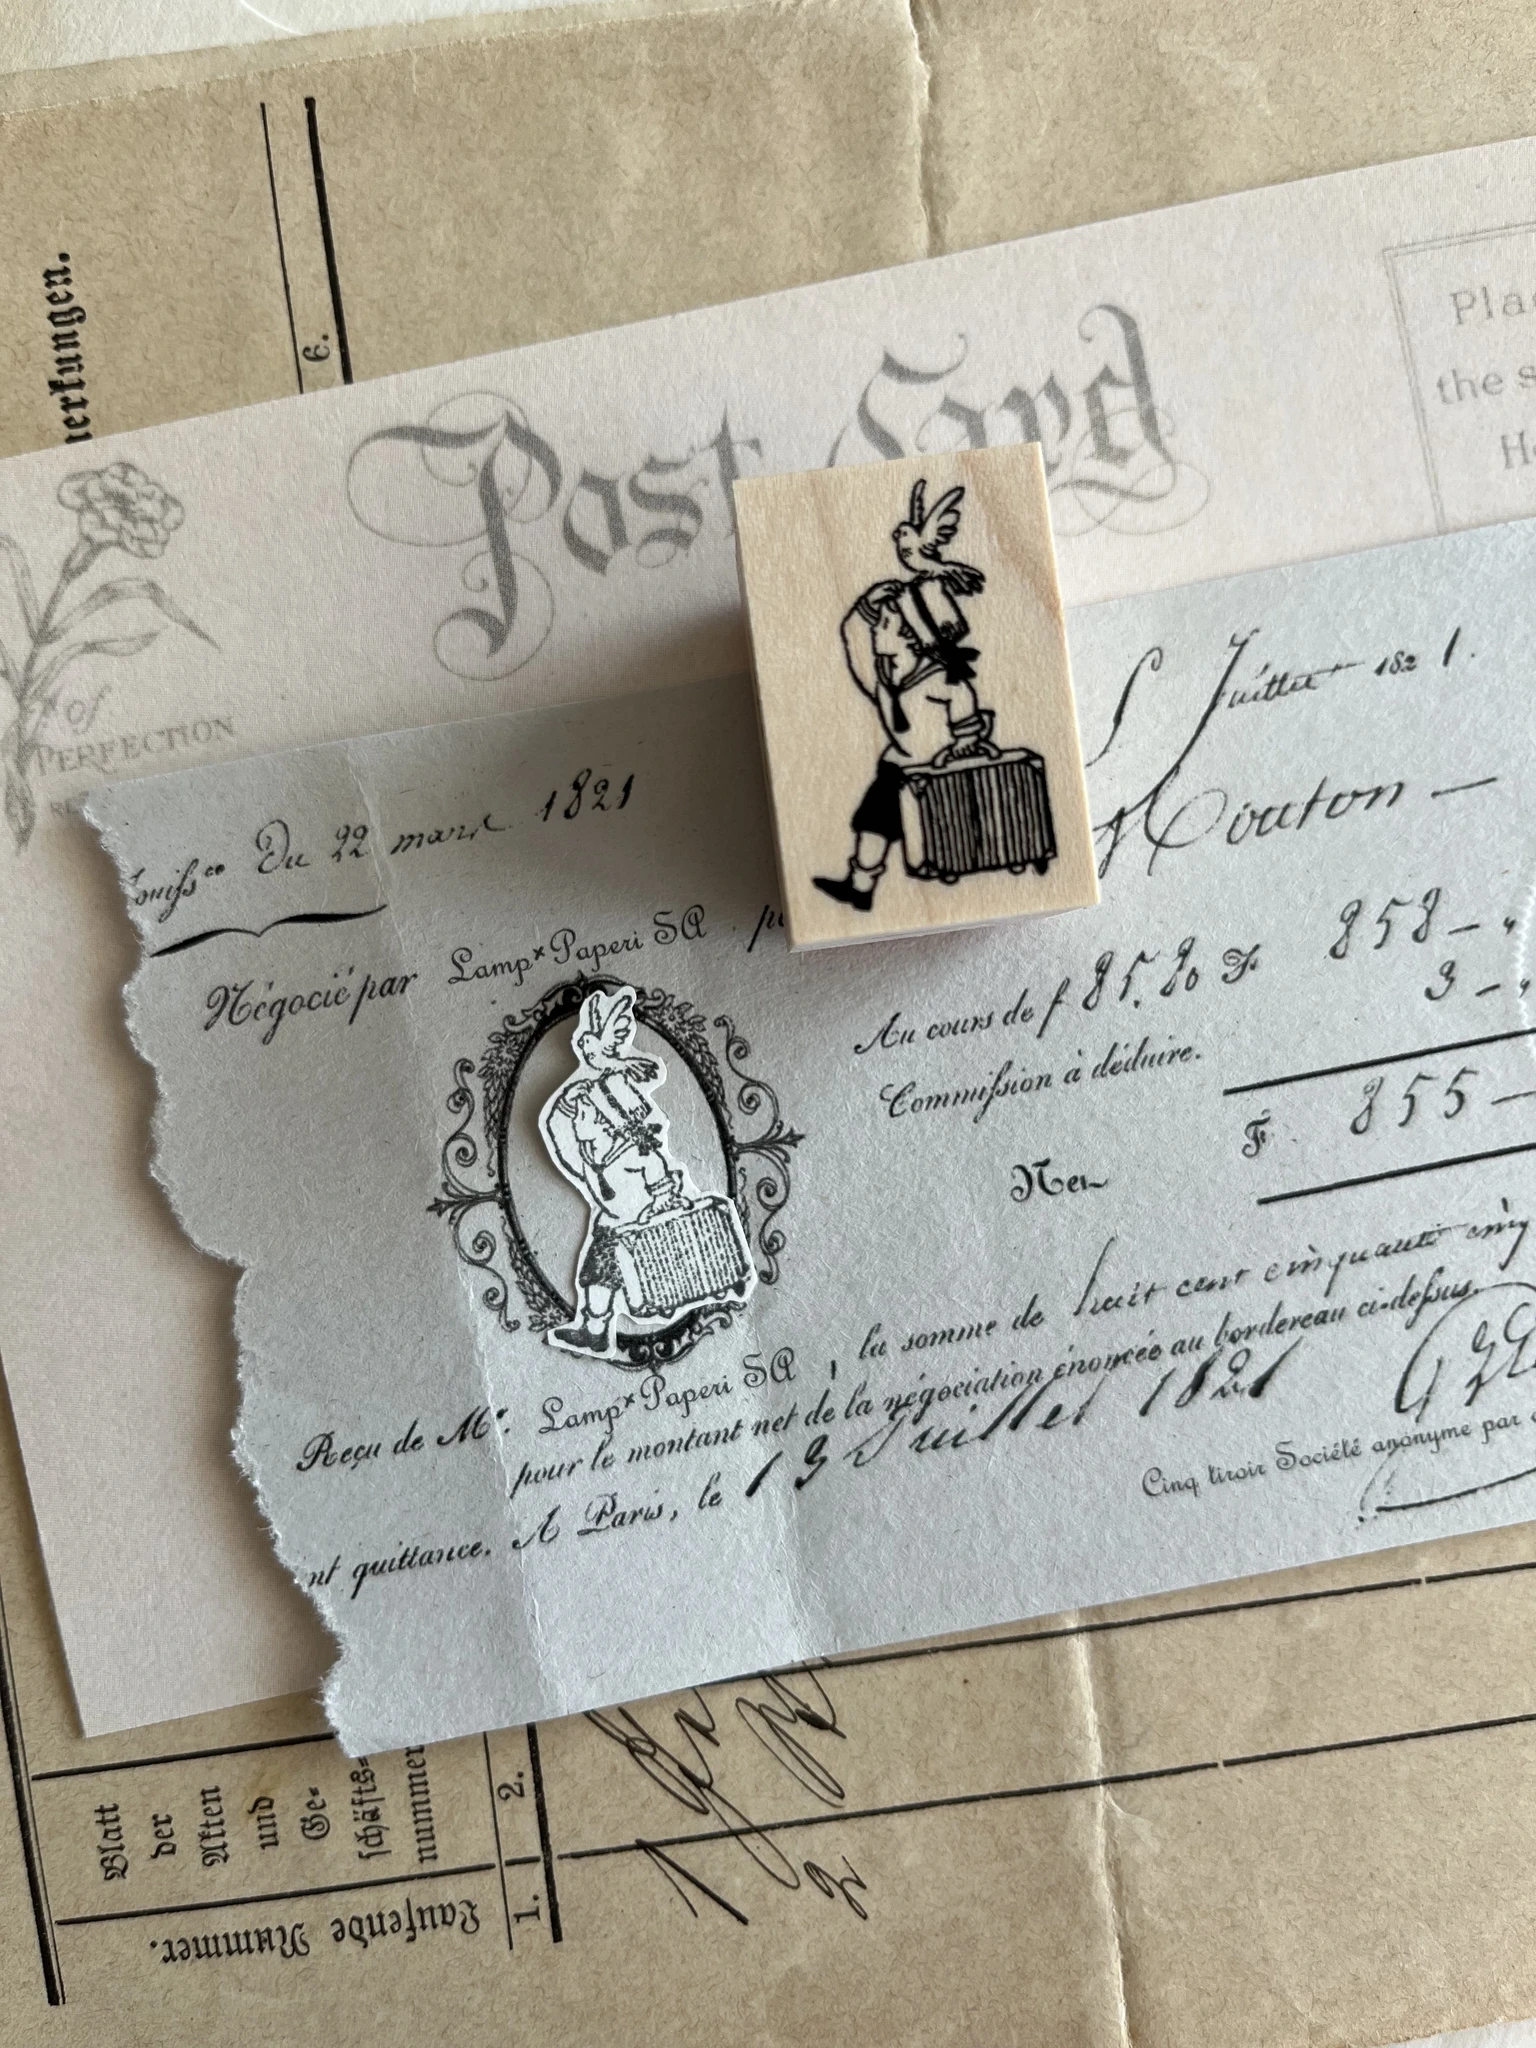 merkungen.
6.
Post Card
Pla
the s
He
of
PERFECTION
Juillet 1821.
Du 22 mars 1821
Mouton —
Négocié par Lamp×Paperi SA
Au cours de f 85.20 F. 858 — „
Commission à déduire. 3 — „
Net F. 855 —
Reçu de Mr. Lamp×Paperi SA, la somme de huit cent cinquante cinq
pour le montant net de la négociation énoncée au bordereau ci-dessus.
nt quittance. A Paris, le 13 Juillet 1821
Cinq tiroir Société anonyme par
Blatt
der
Akten
und
Ge-
schäfts-
nummer
2.
Laufende Nummer.
1.
1
2